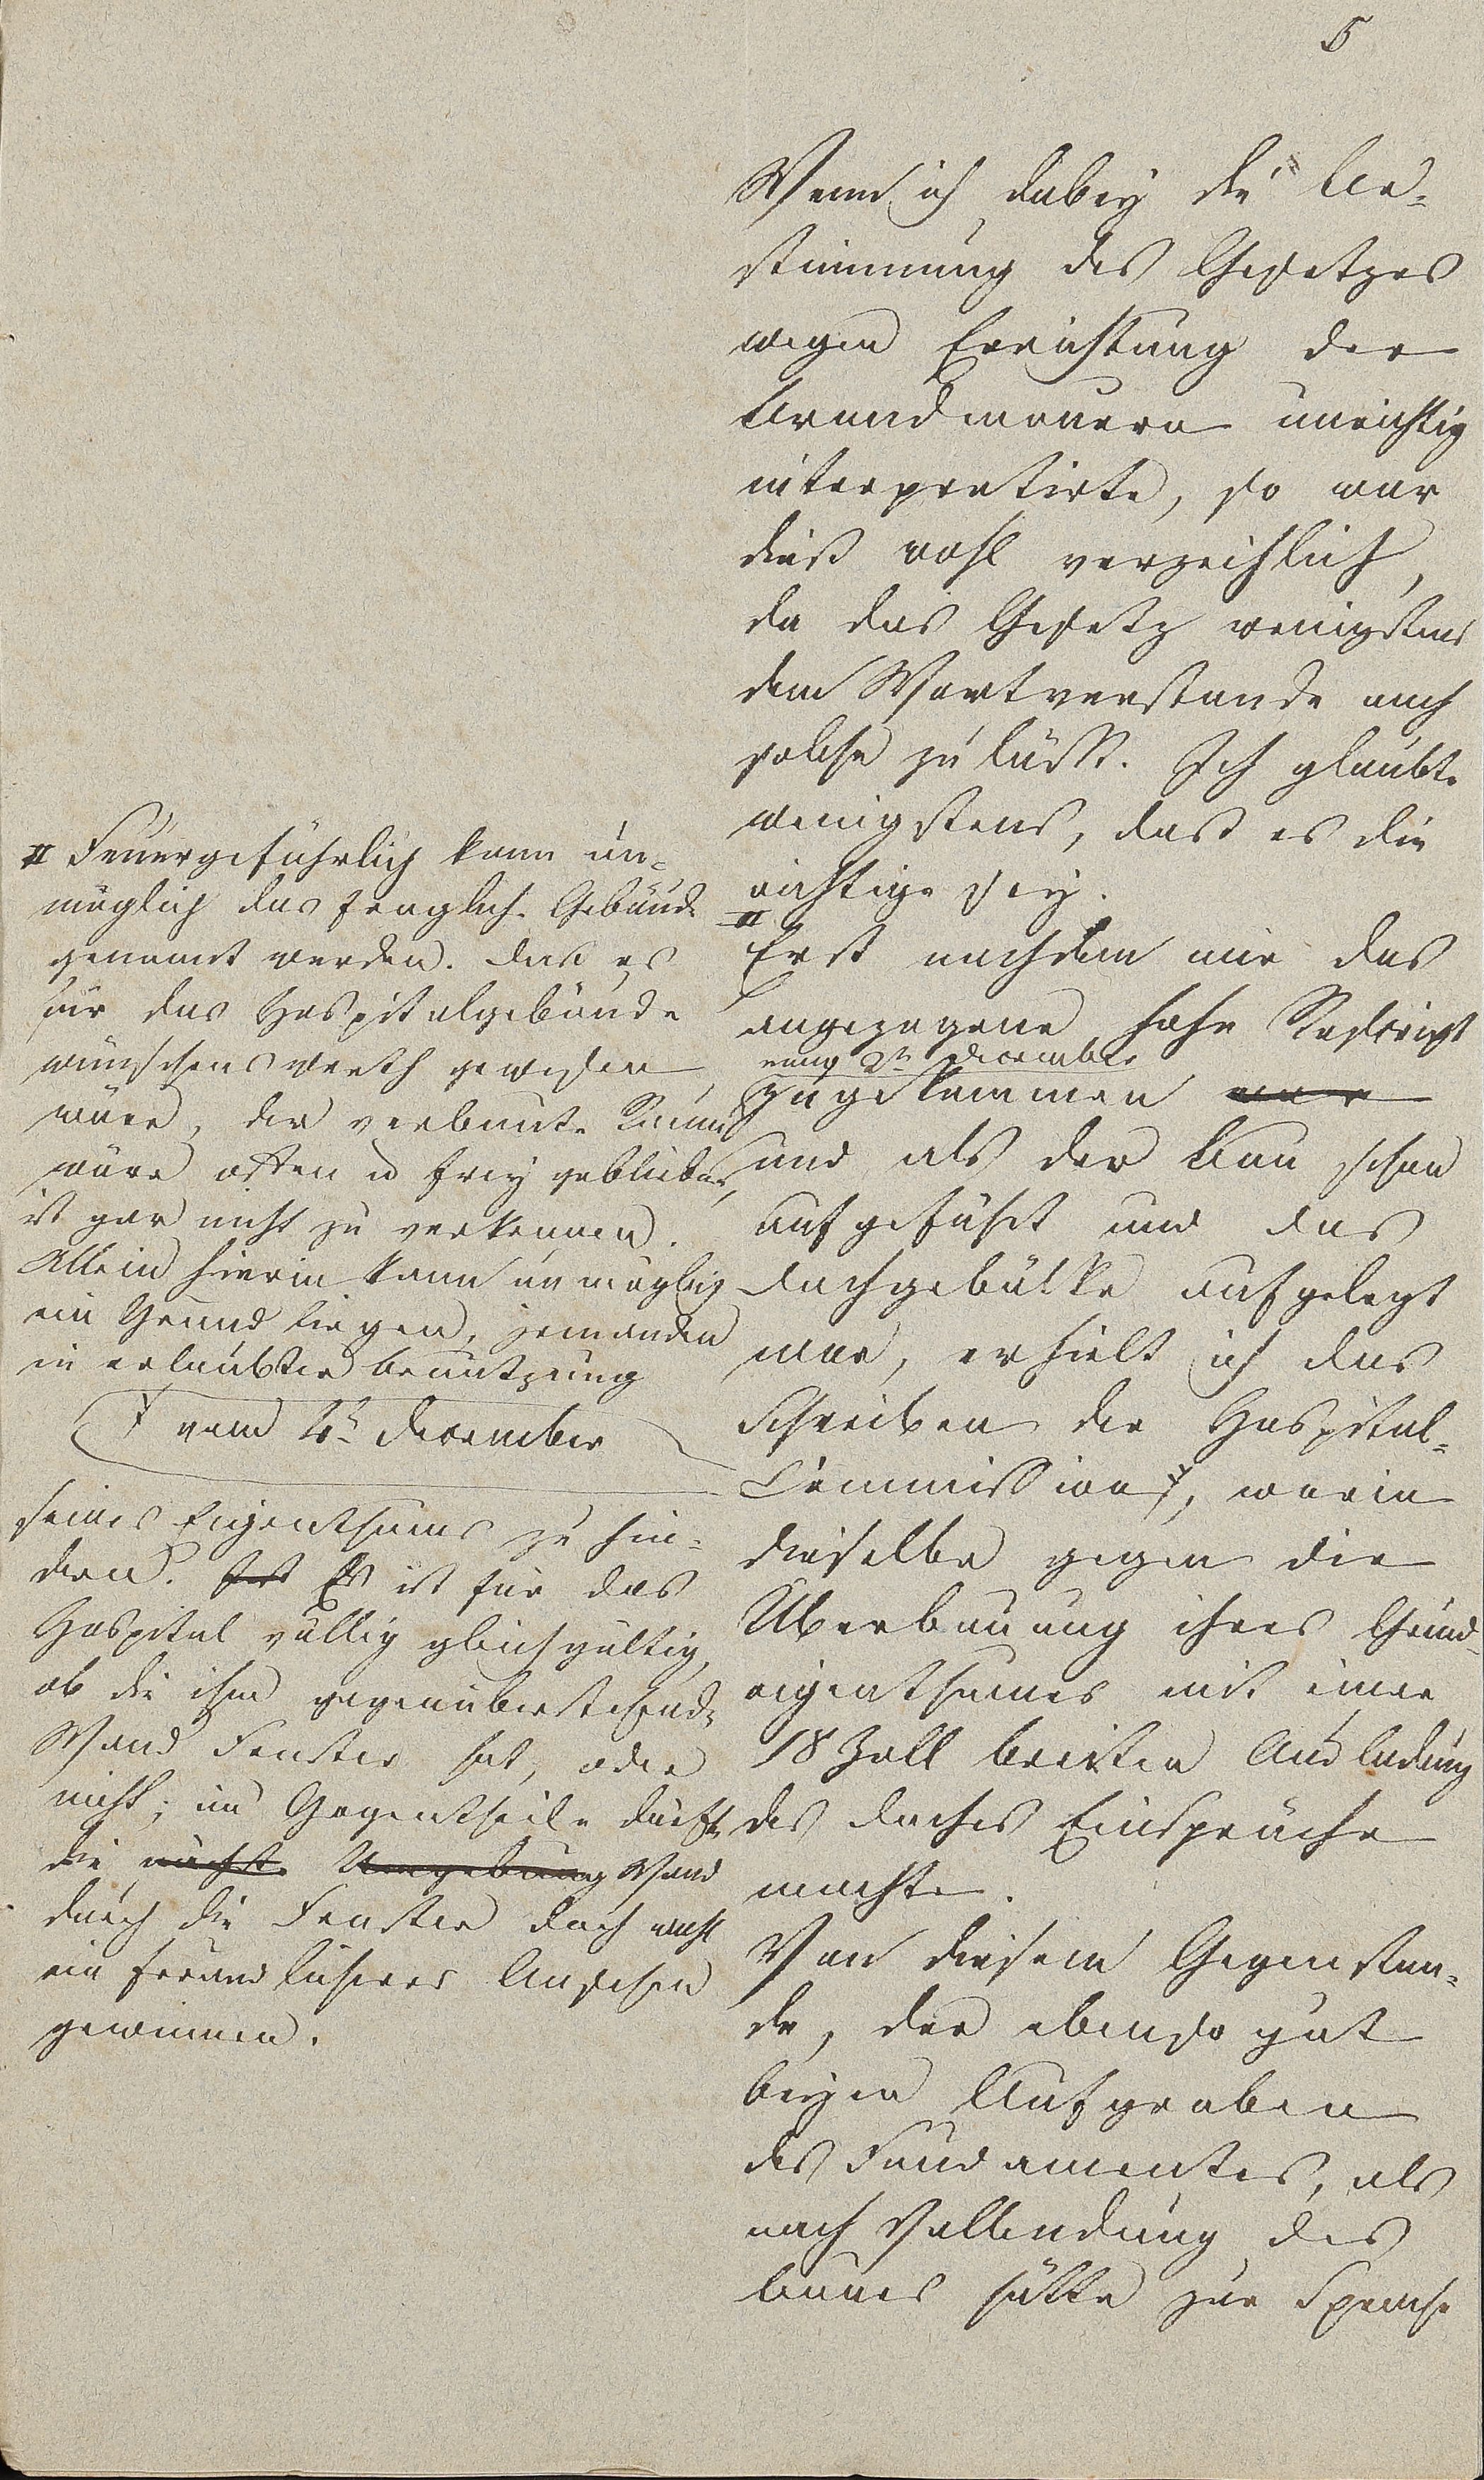 5
Wenn ich dabey die Be-
stimmung des Gesetzes
wegen Errichtung der
Brandmauern unrichtig
interpretirte, so war
dieß wohl verzeihlich,
da das Gesetz wenigstens
dem Wortverstande nach
solche zuläßt. Ich glaubte
wenigstens, dast es die
richtige sey.
#
Erst nachdem mir das
angezogene hohe Rescript
vom 2n December
zugekommen war
und als der Bau schon
aufgeführt und das
Dachgebälke aufgelegt
war, erhielt ich das
Schreiben der Hospital-
Commission †, worin
dieselbe gegen die
Überbauung ihres Grund-
eigenthumes mit einer
18 Zoll breiten Ausladung
des Daches Einsprüche
machte.
Von diesem Gegenstan-
de, der ebenso gut
beyem Aufgraben
des Fundamentes, als
nach Vollendung des
Baues hätte zur Sprache
# Feuergefährlich kann un-
möglich das fragliche Gebäude
genannt werden. Daß es
für das Hospitalgebäude
wünschenswerth gewesen
wäre, der verbaute Raum
wäre offen u frey geblieben,
ist gar nicht zu verkennen.
Allein hierin kann unmöglich
ein Grund liegen, jemanden
in erlaubter Benutzung
† vom 4n December
seines Eigenthums zu hin-
dern. Ist Es ist für das
Hospital völlig gleichgültig,
ob die ihm gegenüberstehende
Wand Fenster hat, oder
nicht; im Gegentheile dürfte
die nächste Umgebung Wand
durch die Fenster doch wohl
ein freundlicheres Ansehen
gewinnen.